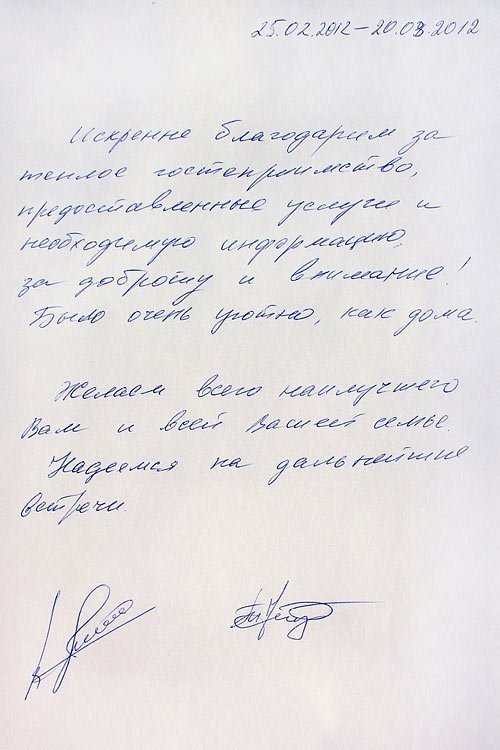 25.02.2012 – 20.03.2012
Искренне благодарим за
теплое гостеприимство,
предоставленные услуги и
необходимую информацию,
за доброту и внимание!
Было очень уютно, как дома.
Желаем всего наилучшего
Вам и всей Вашей семье.
Надеемся на дальнейшие
встречи.